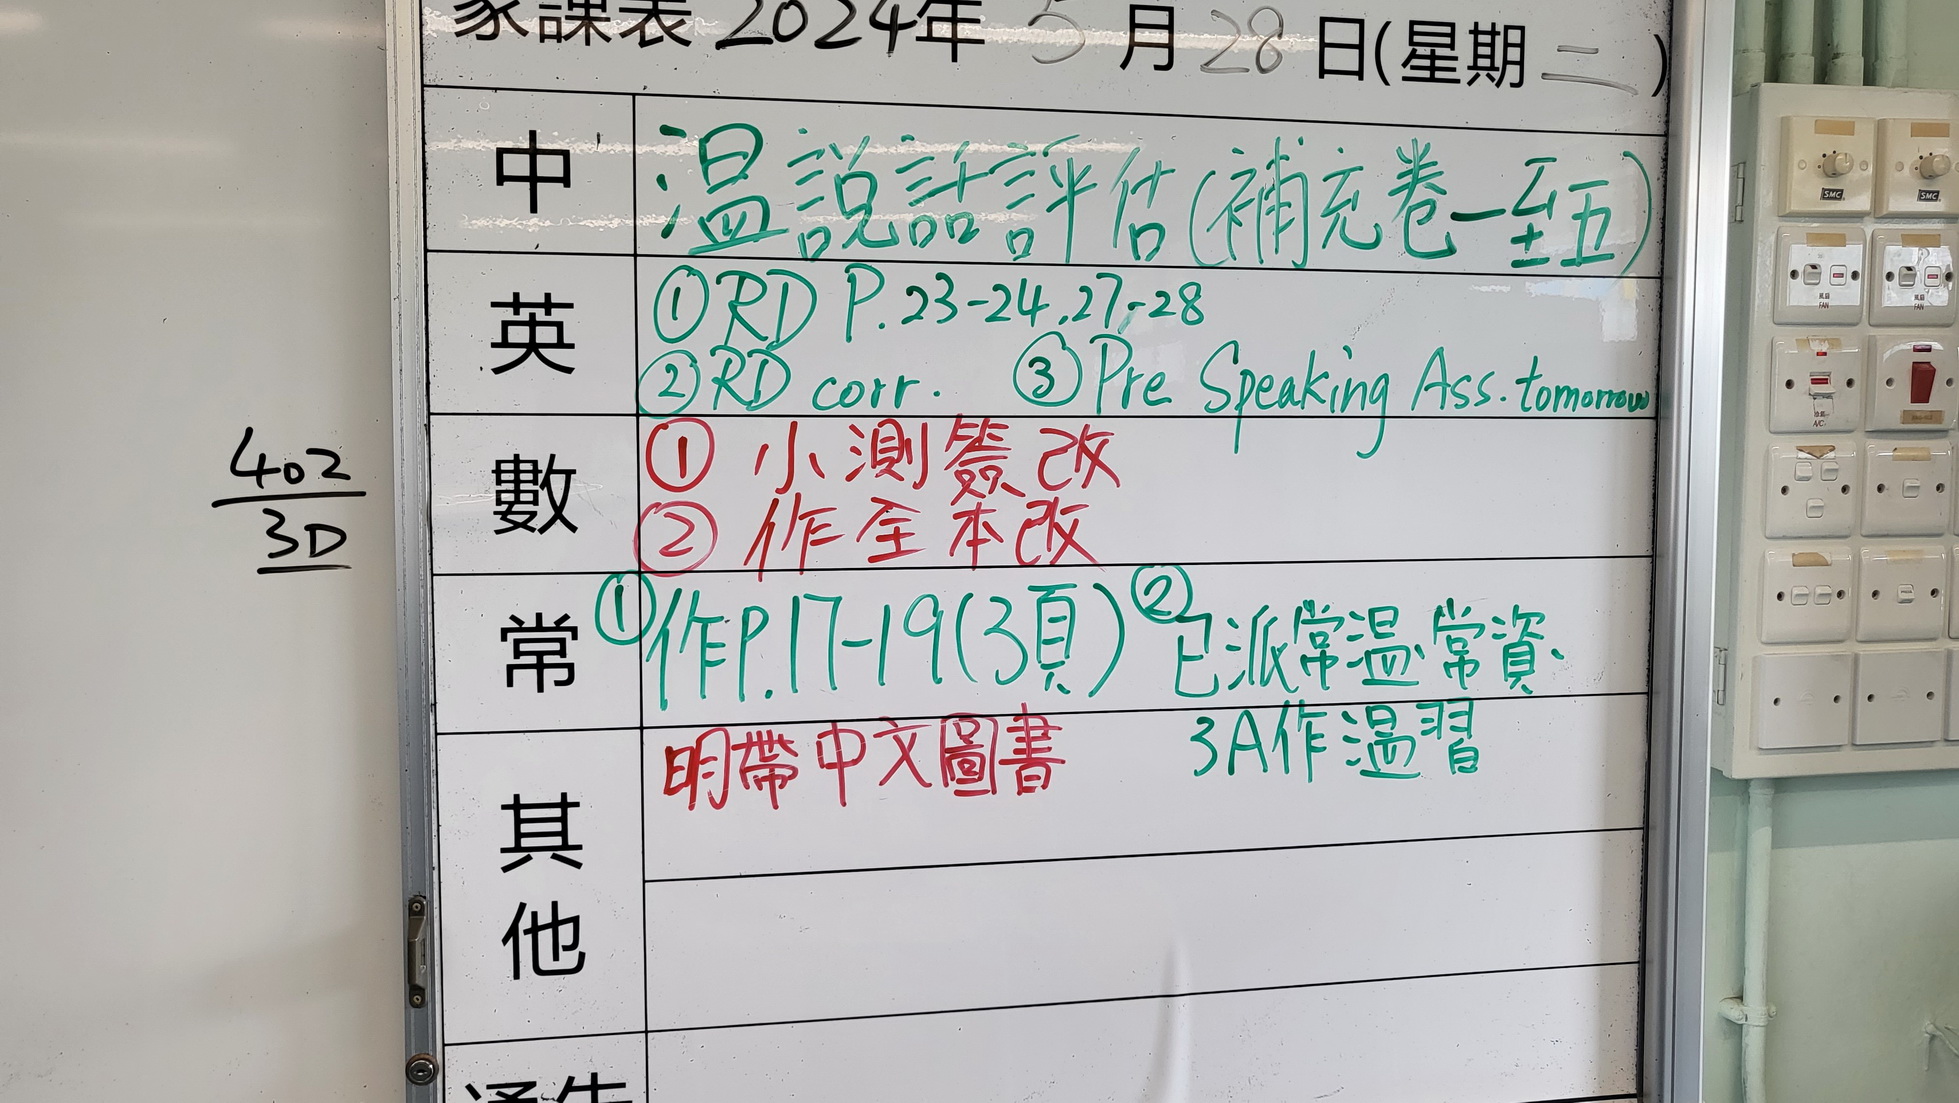 家課表 2024年 5月 28日(星期二)
中
溫說話評估(補充卷一至五)
英
①RD P.23-24,27-28
②RD corr. ③Pre Speaking Ass. tomorrow
數
① 小測簽改
② 作全本改
402
3D
常
①作P.17-19(3頁) ②已派常溫、常資、
3A作溫習
其他
明帶中文圖書
通告
SMC
SMC
風扇
FAN
風扇
FAN
A/C